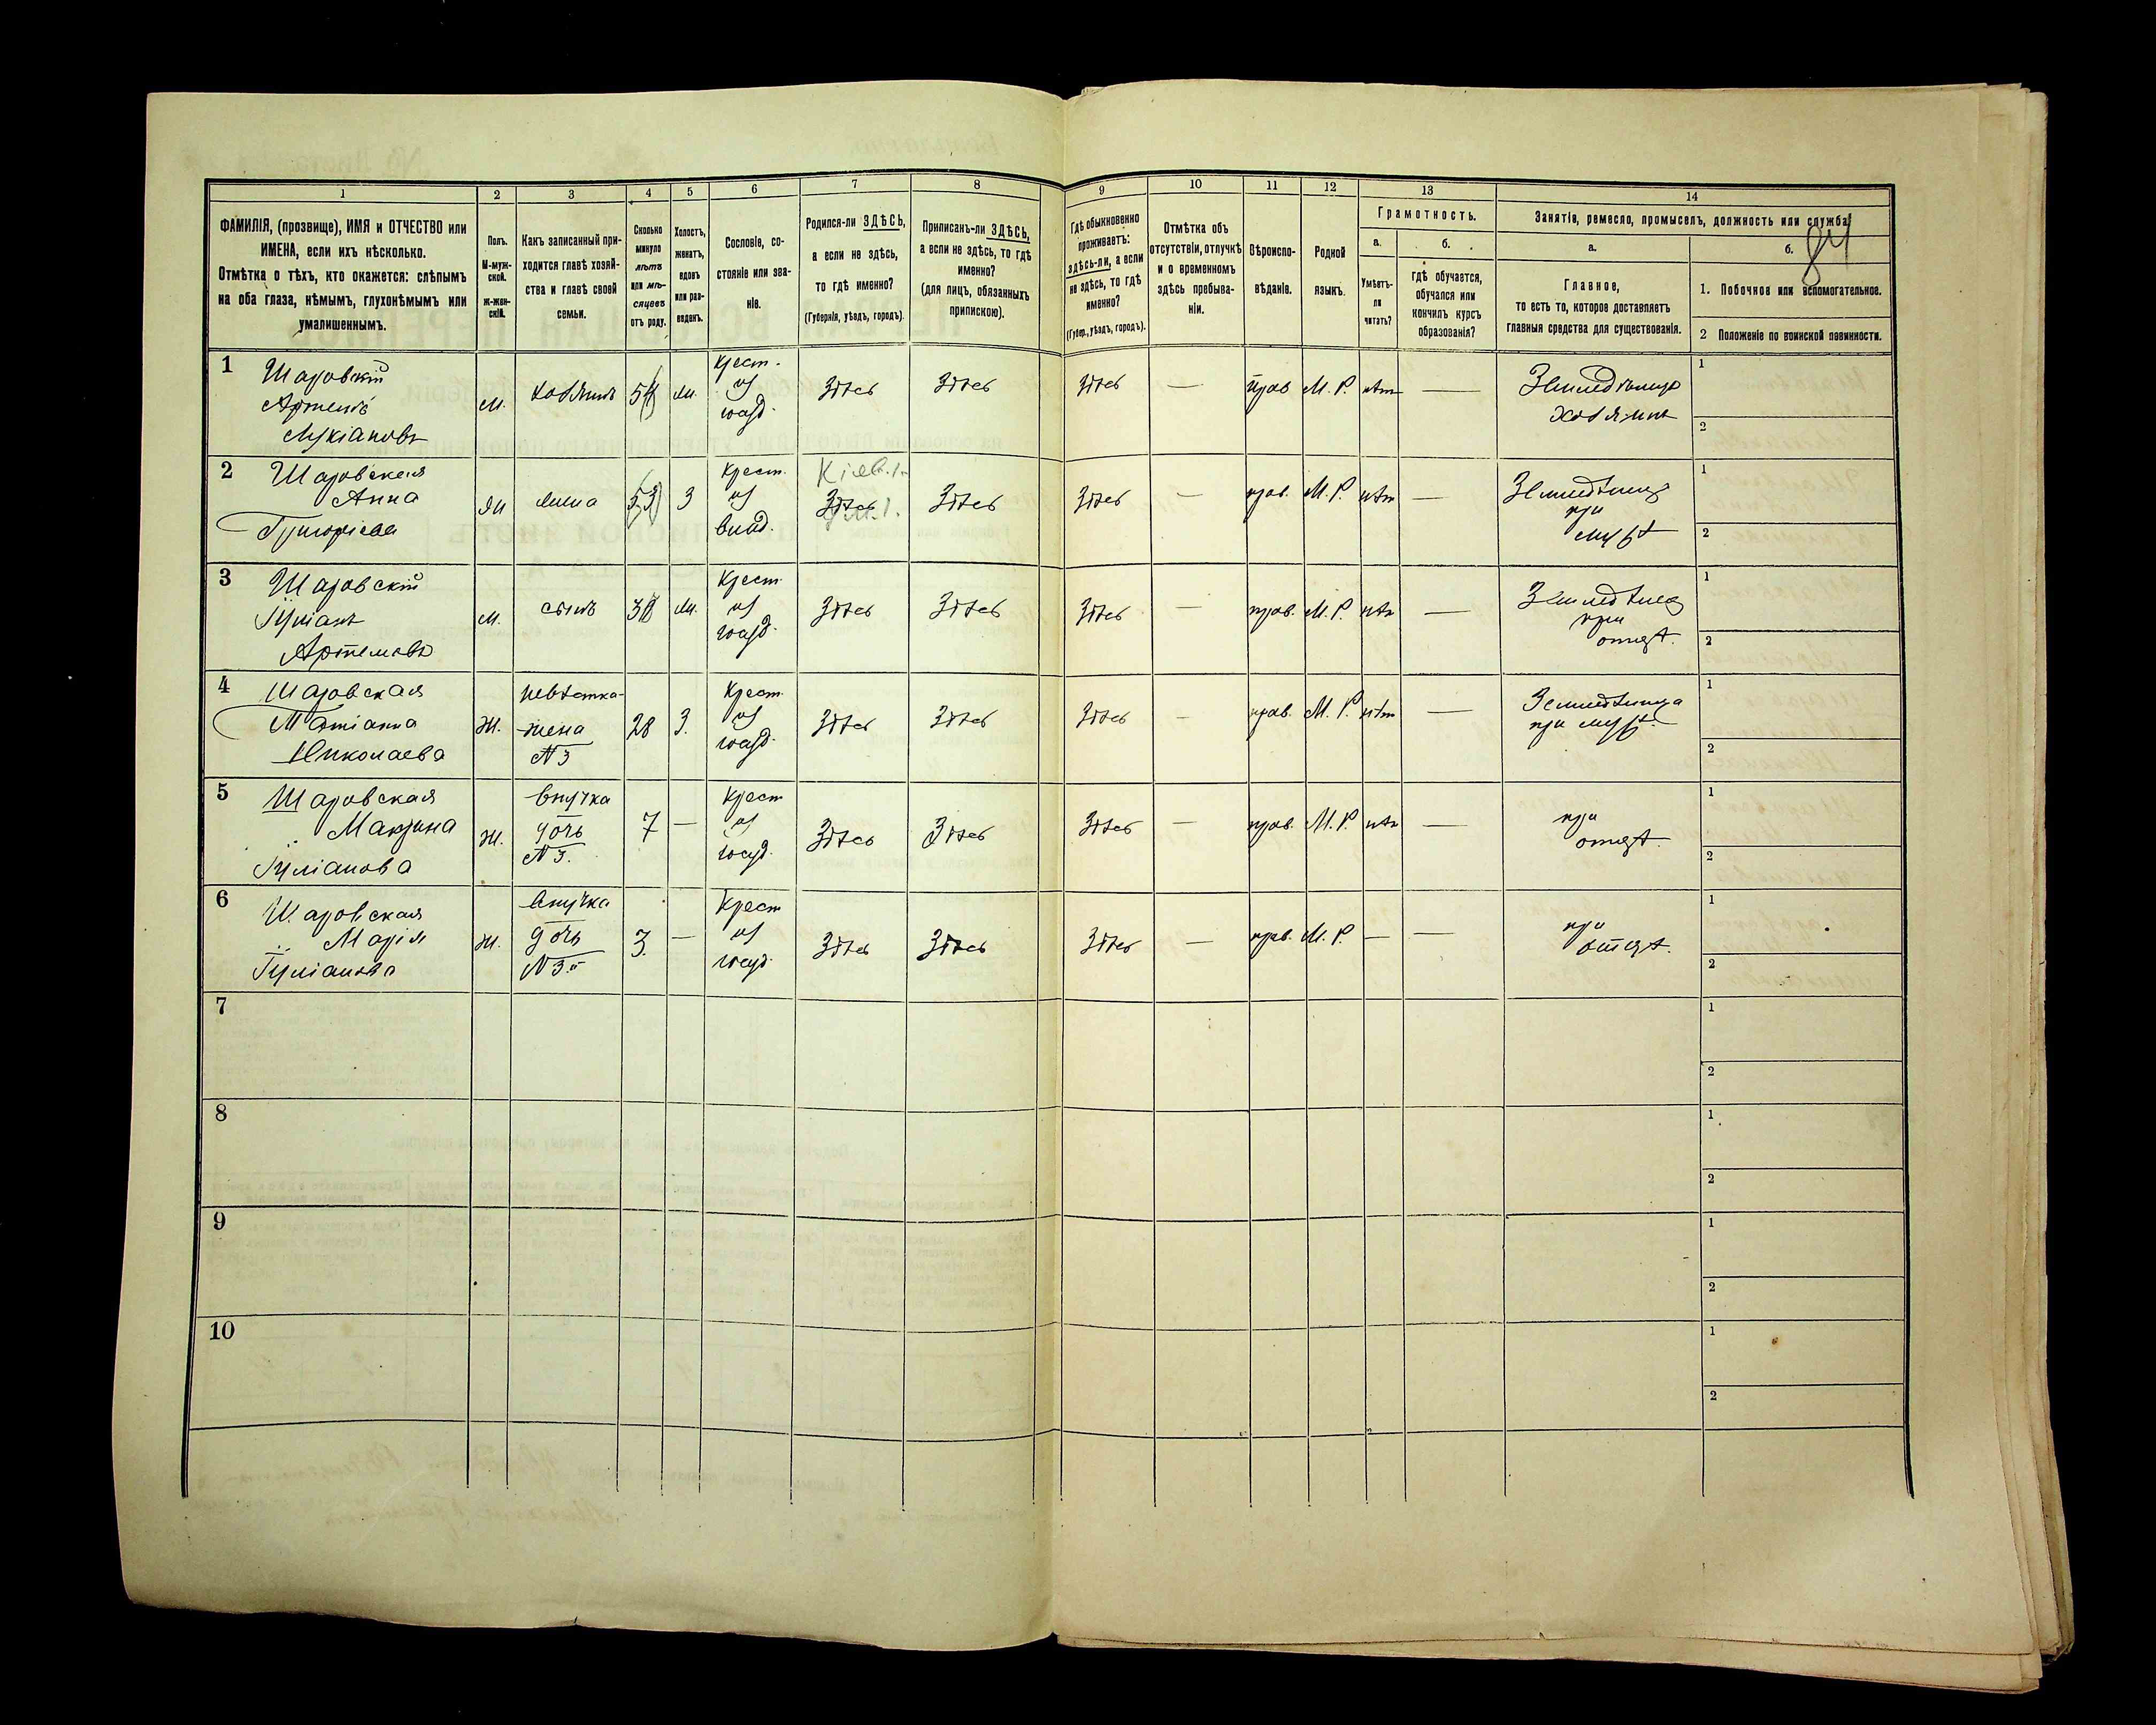 1 2 3 4 5 6 7 8 9 10 11 12 13 14
ФАМИЛІЯ, (прозвище), ИМЯ и ОТЧЕСТВО или
ИМЕНА, если ихъ нѣсколько.
Отмѣтка о тѣхъ, кто окажется: слѣпымъ
на оба глаза, нѣмымъ, глухонѣмымъ или
умалишеннымъ.
Полъ.
М-муж-
ской.
ж-жен-
скій.
Какъ записанный при-
ходится главѣ хозяй-
ства и главѣ своей
семьи.
Сколько
минуло
лѣтъ
или мѣ-
сяцевъ
отъ роду.
Холостъ,
женатъ,
вдовъ
или раз-
веденъ.
Сословіе, со-
стояніе или зва-
ніе.
Родился-ли ЗДѢСЬ,
а если не здѣсь,
то гдѣ именно?
(Губернія, уѣздъ, городъ).
Приписанъ-ли ЗДѢСЬ,
а если не здѣсь, то гдѣ
именно?
(для лицъ, обязанныхъ
припискою).
Гдѣ обыкновенно
проживаетъ:
здѣсь-ли, а если
не здѣсь, то гдѣ
именно?
(Губер., уѣздъ, городъ).
Отмѣтка объ
отсутствіи, отлучкѣ
и о временномъ
здѣсь пребыва-
ніи.
Вѣроиспо-
вѣданіе.
Родной
языкъ.
Грамотность.
а.
Умѣетъ-
ли
читать?
б.
гдѣ обучается,
обучался или
кончилъ курсъ
образованія?
Занятіе, ремесло, промыселъ, должность или служба
84
а.
Главное,
то есть то, которое доставляетъ
главныя средства для существованія.
б.
1. Побочное или вспомогательное.
2 Положеніе по воинской повинности.
1
Шаровскій
Артемій
Лукіановъ
м.
хозяинъ
ж.
крест.
из
госуд.
Здѣсь
Здѣсь
Здѣсь
—
прав
М. Р.
нѣт
—
Земледѣлецъ
хозяинъ
1
2
2
Шаровская
Анна
Григоріева
ж
жена
53
З
крест.
из
влад.
Кіев. г.
Здѣсь
Здѣсь
Здѣсь
—
прав.
М. Р.
нѣт
—
Земледѣлица
при
мужѣ
1
2
3
Шаровскій
Іуліанъ
Артемовъ
м.
сынъ
ж.
Крест.
из
госуд.
Здѣсь
Здѣсь
Здѣсь
—
прав.
М. Р.
нѣт
—
Земледѣлецъ
при
отцѣ.
1
2
4
Шаровская
Татіанна
Николаева
Ж.
невѣстка
жена
№ 3
28
З.
Крест.
из
госуд.
Здѣсь
Здѣсь
Здѣсь
—
прав.
М. Р.
нѣт
—
Земледѣлица
при мужѣ.
1
2
5
Шаровская
Макрина
Іуліанова
Ж.
внучка
дочь
№ 3.
7
—
Крест
из
госуд.
Здѣсь
Здѣсь
Здѣсь
—
прав.
М. Р.
нѣт
—
при
отцѣ.
1
2
6
Шаровская
Марія
Іуліанова
Ж.
внучка
дочь
№ 3.
3.
—
Крест
из
госуд.
Здѣсь
Здѣсь
Здѣсь
—
прав.
М. Р.
—
—
при
отцѣ.
1
2
7
1
2
8
1
2
9
1
2
10
1
2